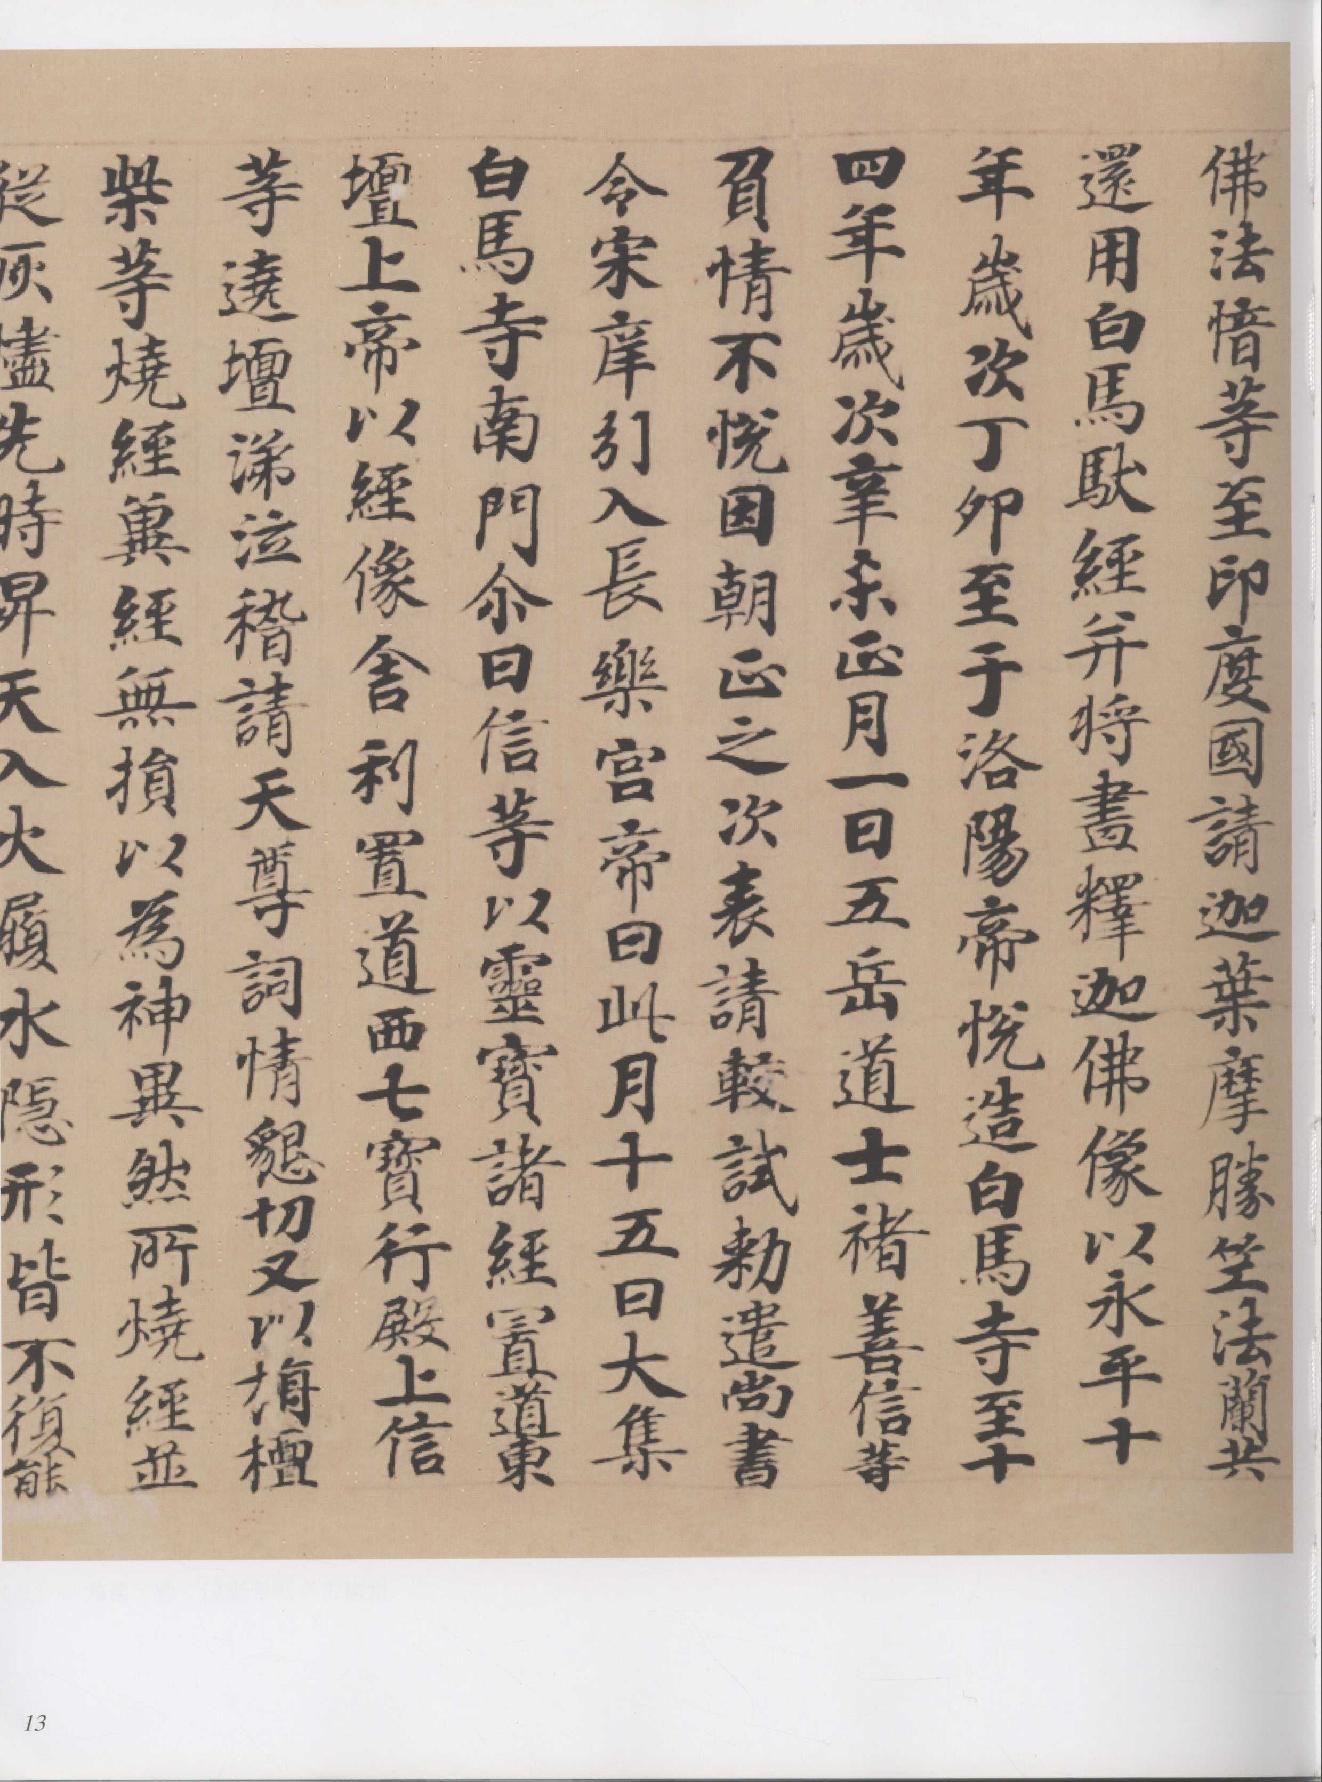 佛法愔等至印度國請迦葉摩勝竺法蘭共
還用白馬馱經并將畫釋迦佛像以永平十
年歲次丁卯至于洛陽帝悅造白馬寺至十
四年歲次辛未正月一日五岳道士褚善信等
負情不悅因朝正之次表請較試勑遣尚書
令宋庠引入長樂宮帝曰此月十五日大集
白馬寺南門尒日信等以靈寶諸經置道東
壇上帝以經像舍利置道西七寶行殿上信
等遶壇涕泣稽請天尊詞情懇切又以栴檀
柴等燒經兾經無損以為神異然所燒經並
從灰燼先時昇天入火履水隱形皆不復能
13